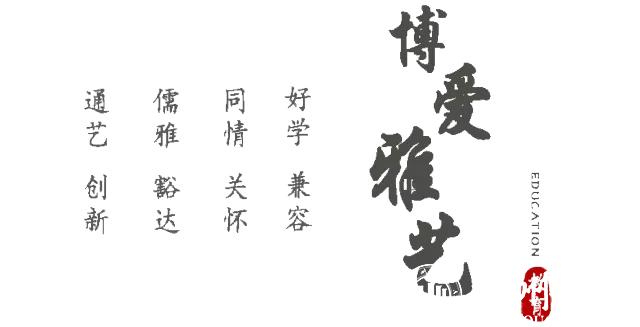 博爱雅艺
EDUCATION
好学 兼容
同情 关怀
儒雅 豁达
通艺 创新